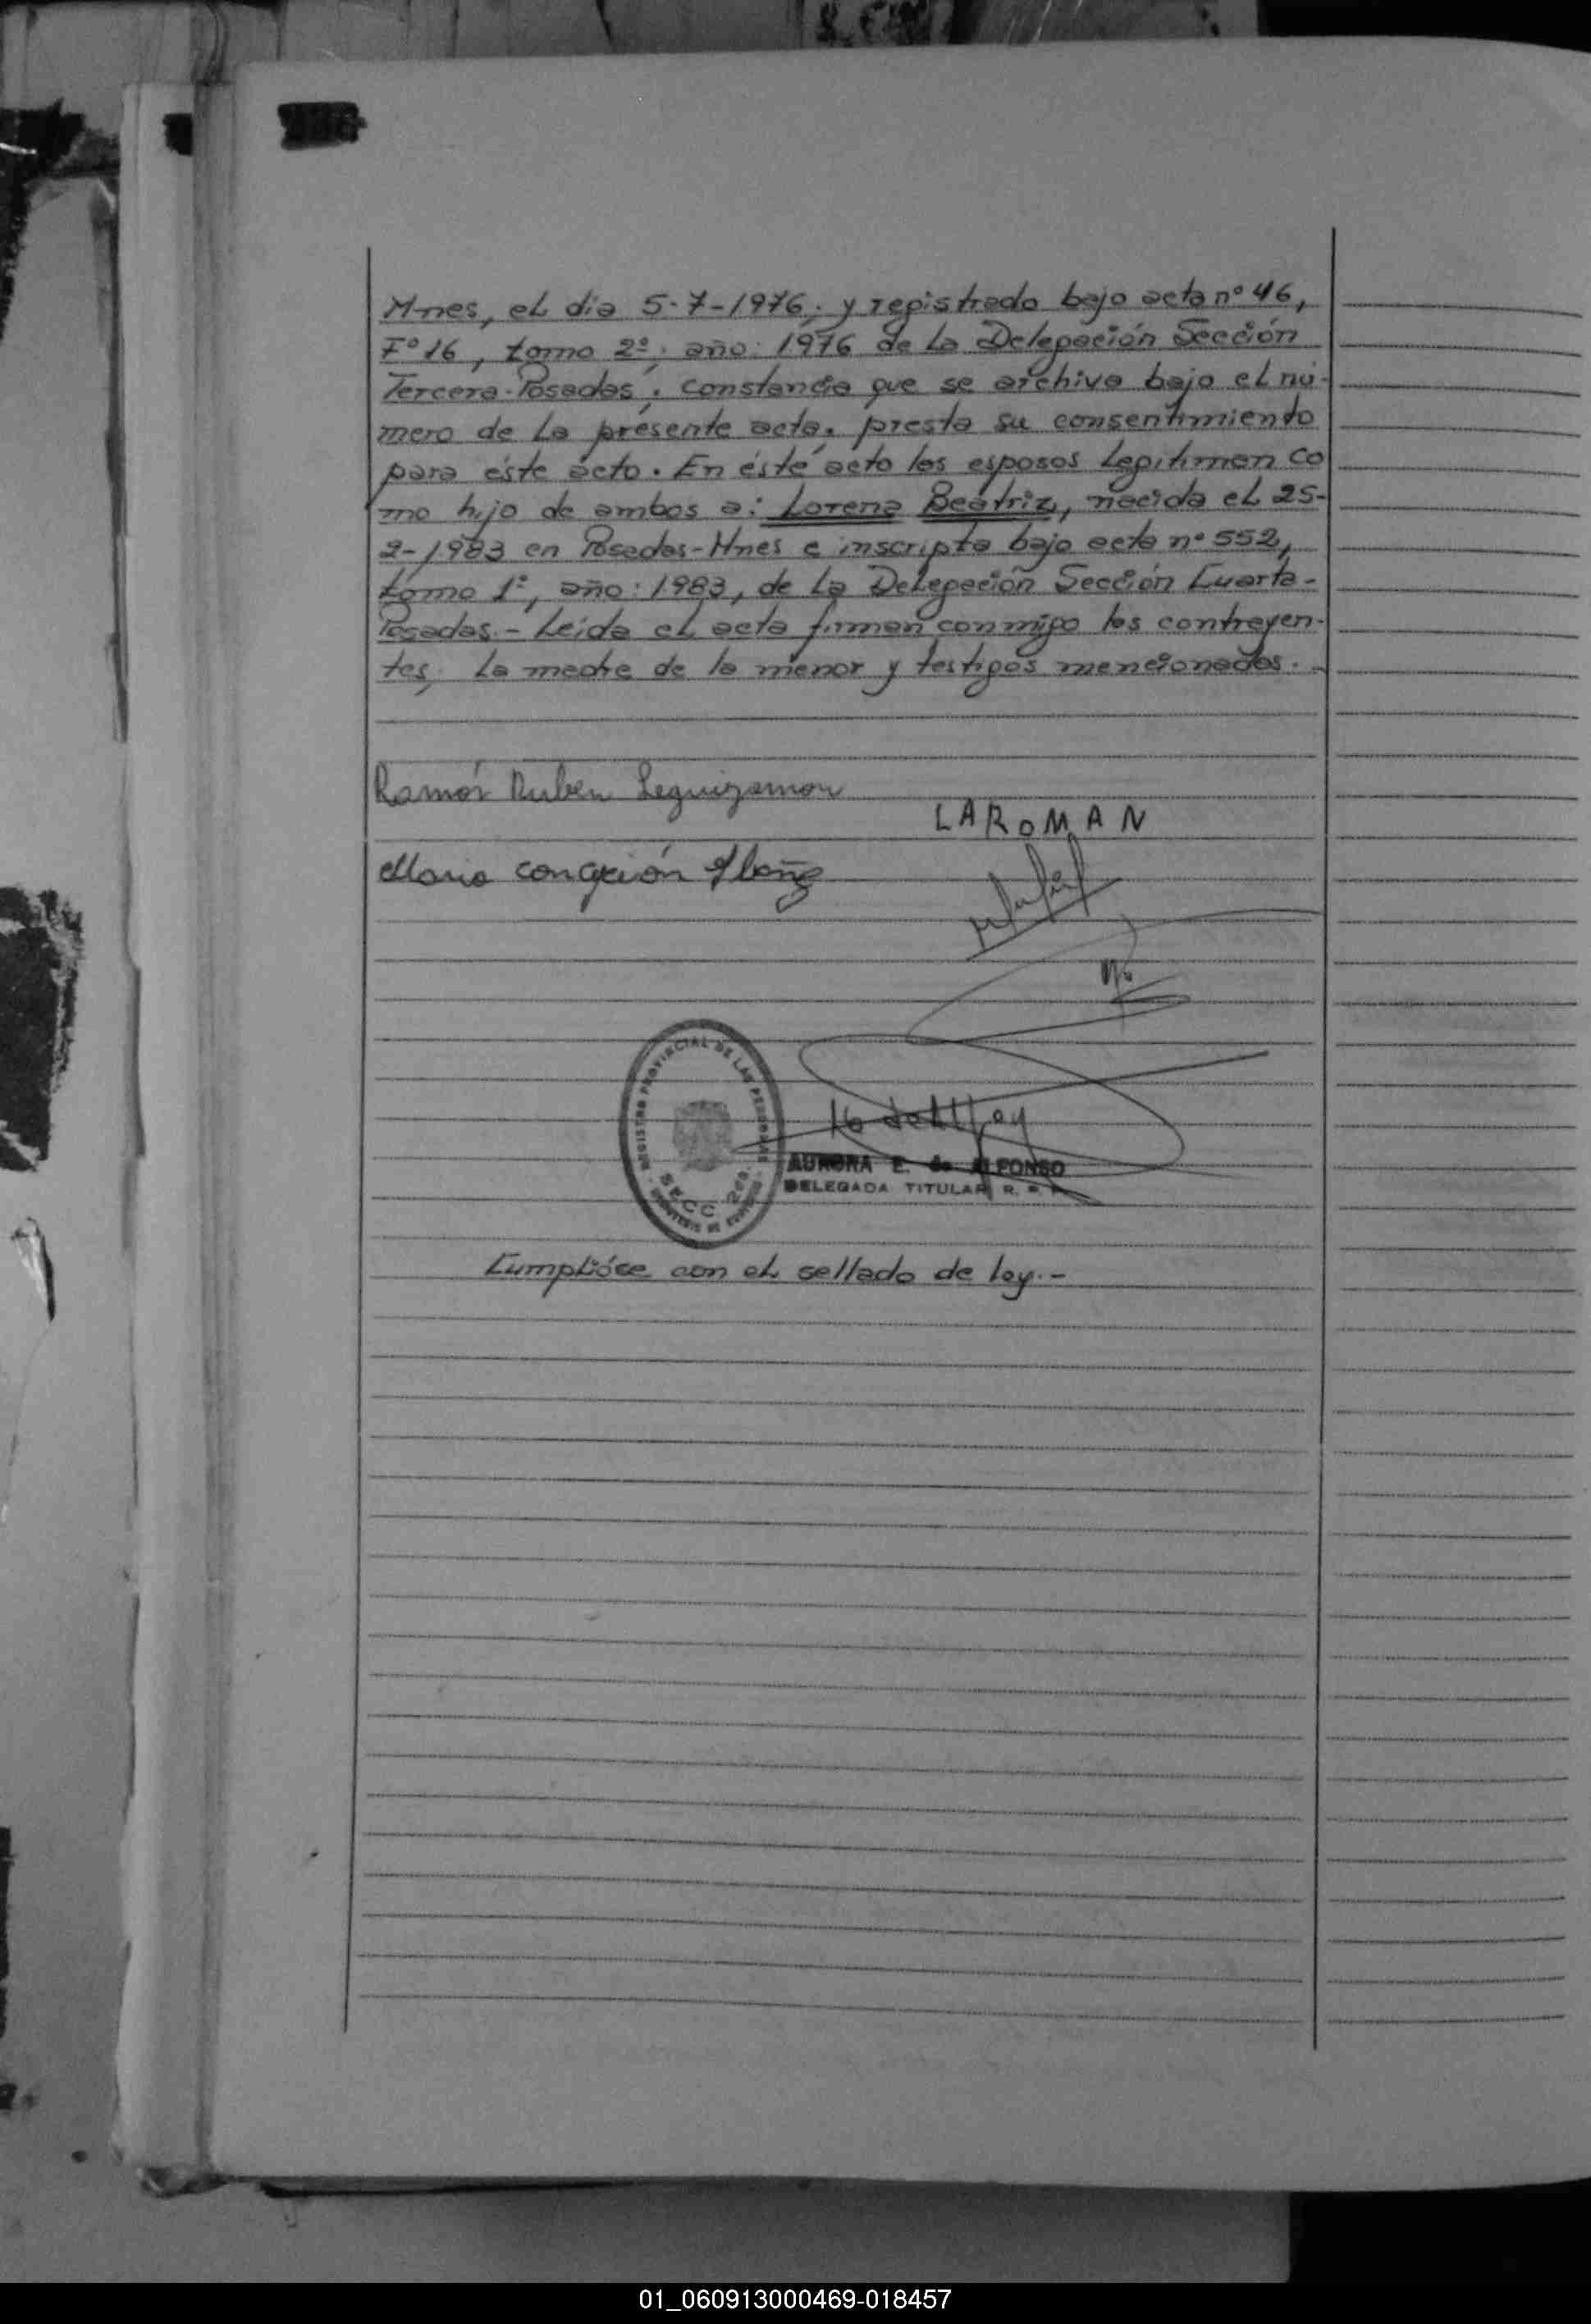 Mnes, el día 5-7-1976; y registrado bajo acta nº 46,
Fº 16, tomo 2º; año: 1976 de la Delegación Sección
Tercera-Posadas; constancia que se archiva bajo el nú-
mero de la presente acta, presta su consentimiento
para éste acto. En éste acto los esposos legitiman co
mo hijo de ambos a: Lorena Beatriz, nacida el 25-
2-1983 en Posadas-Mnes e inscripta bajo acta nº 552,
tomo 1º, año: 1983, de la Delegación Sección Cuarta-
Posadas.- Leída el acta firman conmigo los contrayen-
tes, la madre de la menor y testigos mencionados.-
Ramón Ruben Leguizamon
LAROMAN
Maria concepción
REGISTRO PROVINCIAL DE LAS PERSONAS
SECC 2da.
AURORA E. de ALFONSO
DELEGADA TITULAR R. P. P.
Cumplióse con el sellado de ley.-
01_060913000469-018457